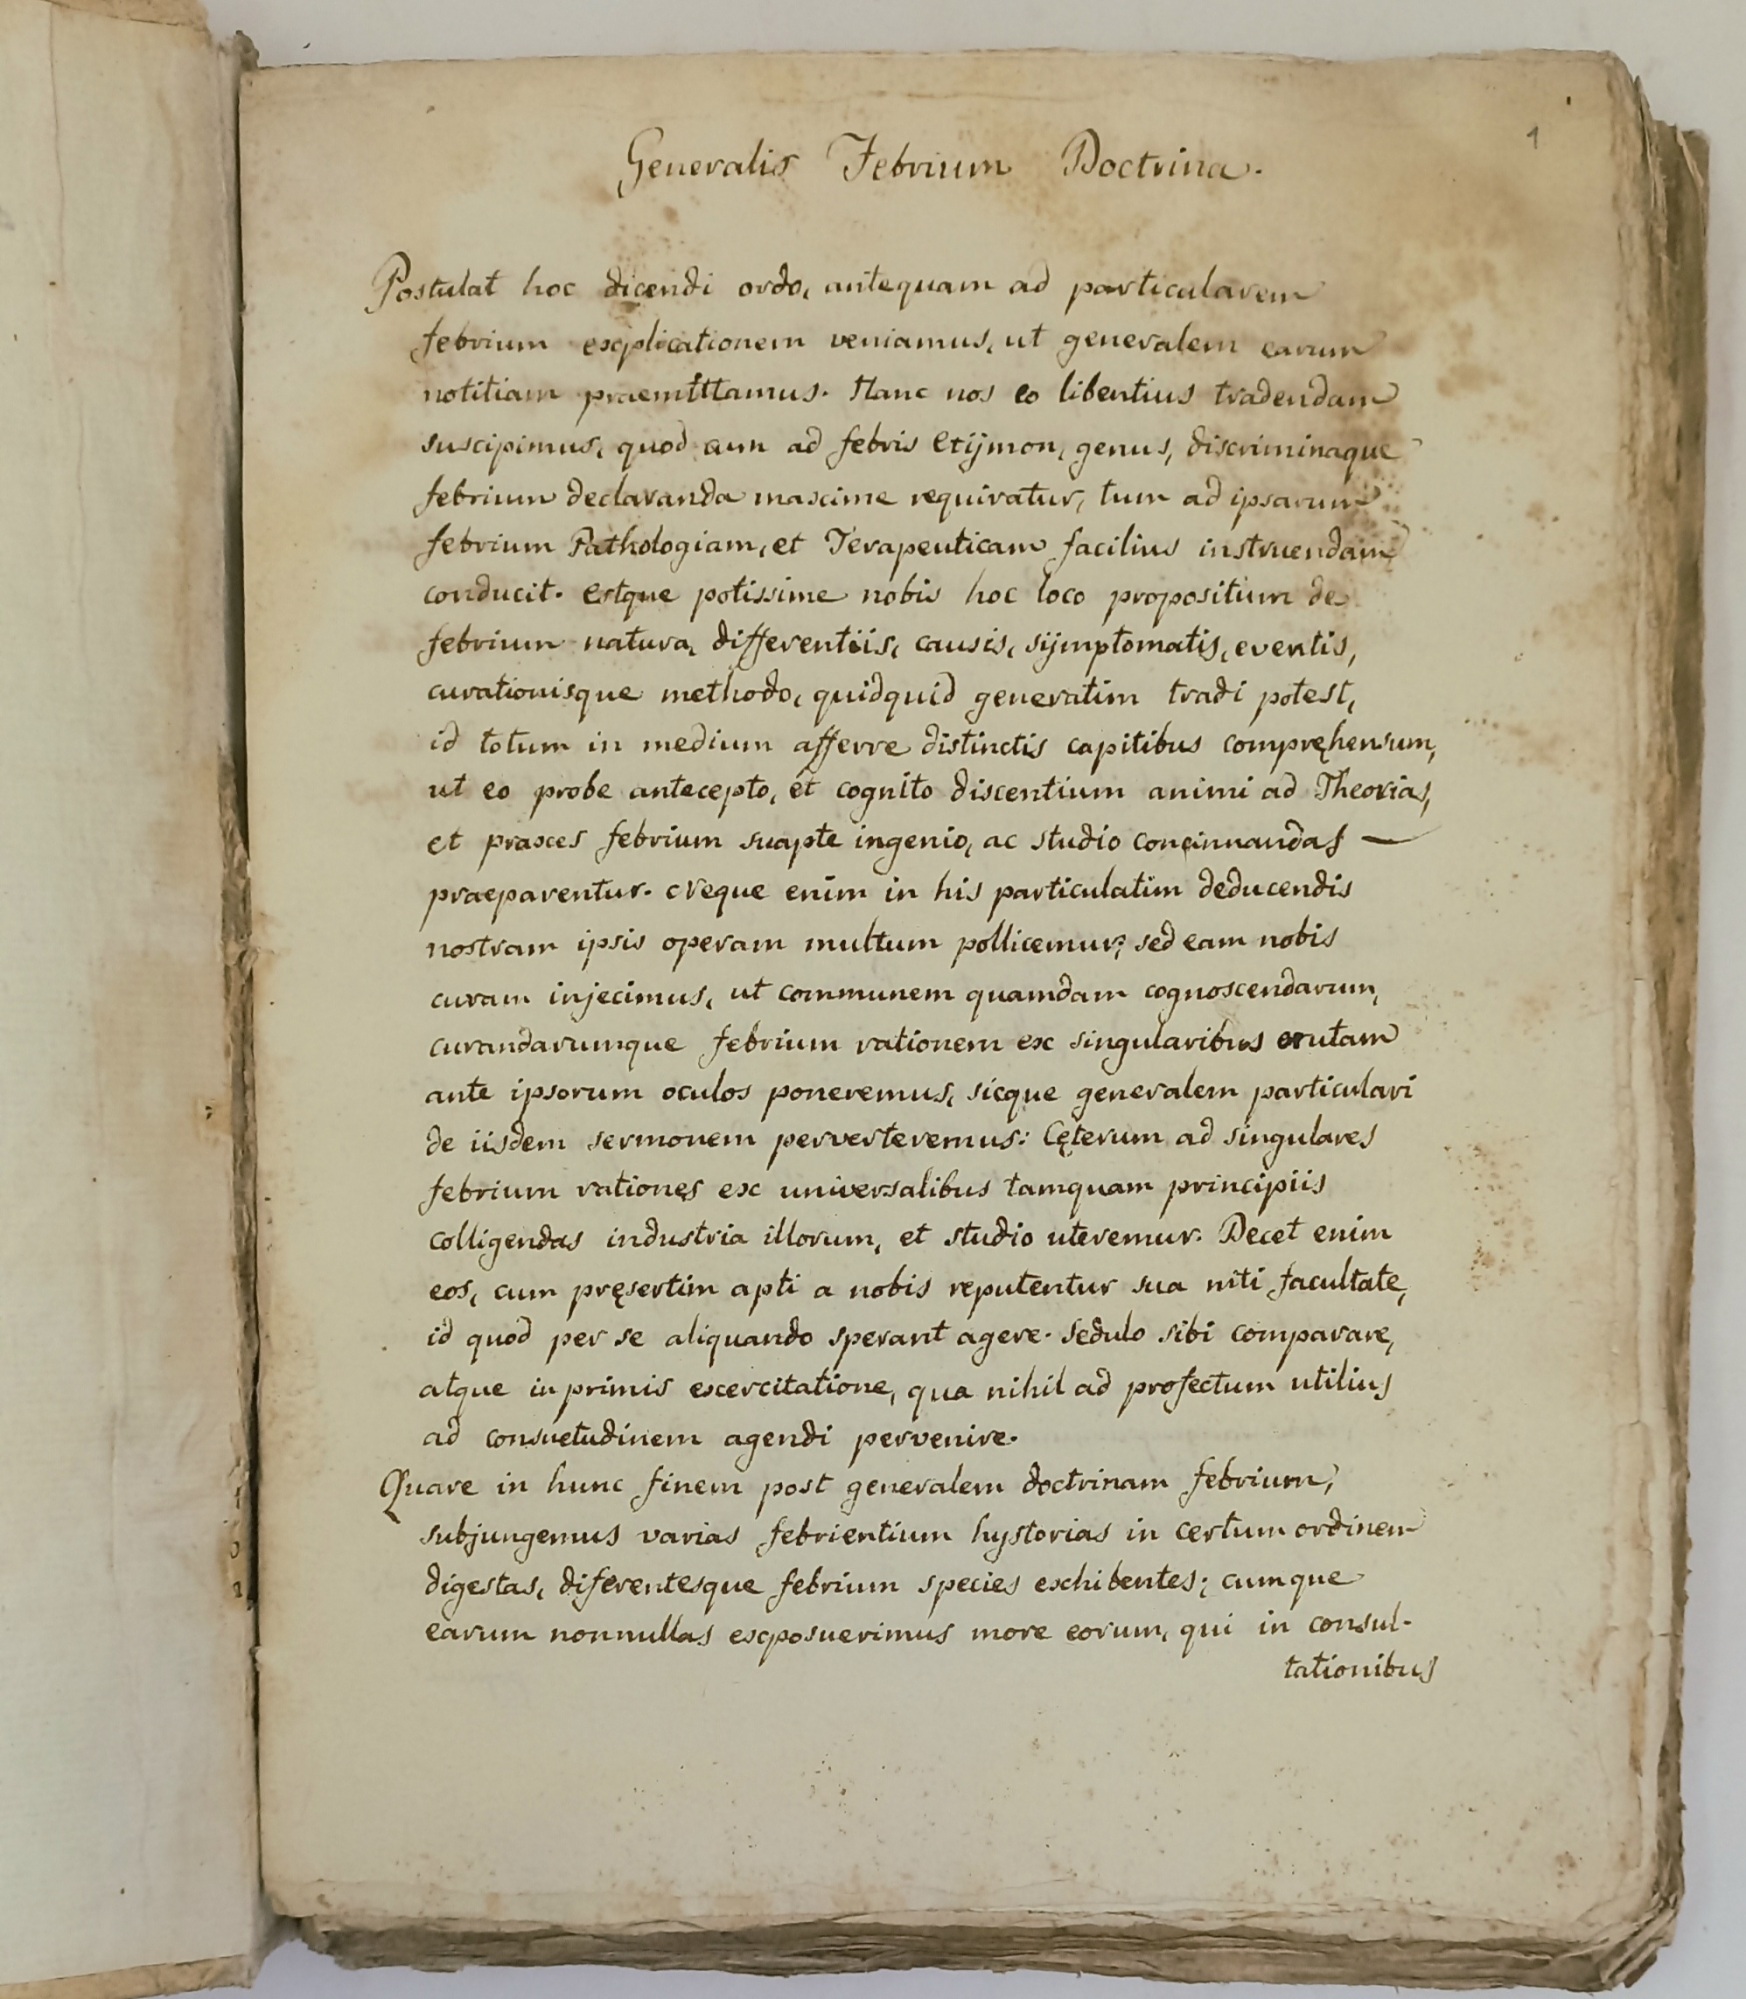 1
Generalis Febrium Doctrina.
Postulat hoc dicendi ordo, antequam ad particularem
febrium explicationem veniamus, ut generalem earum
notitiam praemittamus. Hanc nos eo libentius tradendam
suscipimus, quod cum ad febris Etijmon, genus, discriminaque
febrium declaranda maxime requiratur, tum ad ipsarum
febrium Pathologiam, et Terapeuticam facilius instruendam
conducit. estque potissime nobis hoc loco propositum de
febrium natura, differentiis, causis, sijmptomatis, eventis,
curationisque methodo, quidquid generatim tradi potest,
id totum in medium afferre distinctis capitibus compręhensum,
ut eo probe antecepto, et cognito discentium animi ad Theorias,
et praxes febrium suapte ingenio, ac studio concinnandas —
praeparentur. Neque enim in his particulatim deducendis
nostram ipsis operam multum pollicemur; sed eam nobis
curam injecimus, ut communem quamdam cognoscendarum,
curandarumque febrium rationem ex singularibus erutam
ante ipsorum oculos poneremus, sicque generalem particulari
de iisdem sermonem perverteremus: Cęterum ad singulares
febrium rationes ex universalibus tamquam principiis
colligendas industria illorum, et studio uteremur. Decet enim
eos, cum pręsertim apti a nobis reputentur sua niti facultate,
id quod per se aliquando sperant agere. sedulo sibi comparare,
atque in primis excercitatione, qua nihil ad profectum utilius
ad consuetudinem agendi pervenire.
Quare in hunc finem post generalem doctrinam febrium,
subjungemus varias febrientium hystorias in certum ordinem
digestas, diferentesque febrium species exhibentes; cumque
earum nonnullas exposuerimus more eorum, qui in consul-
tationibus